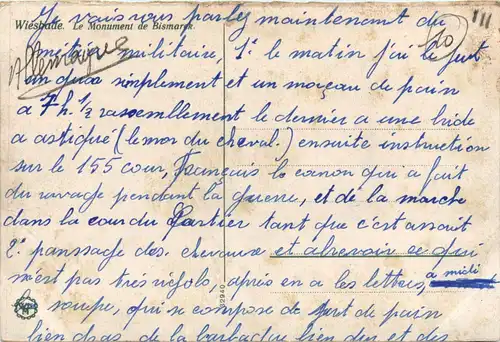 Wiesbade. Le Monument de Bismarck.
Je vais vous parler maintenant du
Allemagne
10
métier militaire, 1º le matin j'ai le just
simplement et un morceau de pain
a 7h. 1/2 rassemblement le dernier a une bride
a astiqué (le mor du cheval.) ensuite instruction
sur le 155 cour, Français le canon qui a fait
du ravage pendant la guerre, et de la marche
dans la cour du Cartier tant que c'est assaut
2º panssage des chevaux et abrevoir ce qui
m'est pas très rigolo, après on a les lettres, a midi
la soupe, qui se compose de just de pain
bien gras, de la barbaque bien dur et des